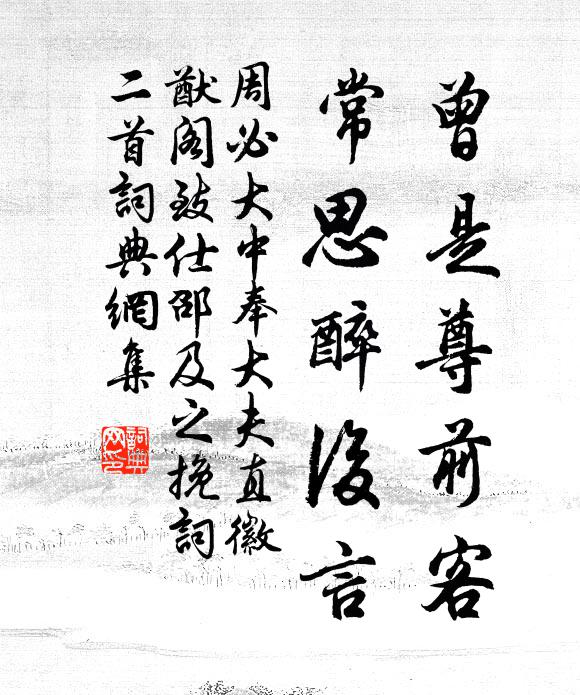 曾是尊前客
常思醉後言
周必大中奉大夫直徽
猷阁致仕邵及之挽詞
二首詞典網集
詞典网印